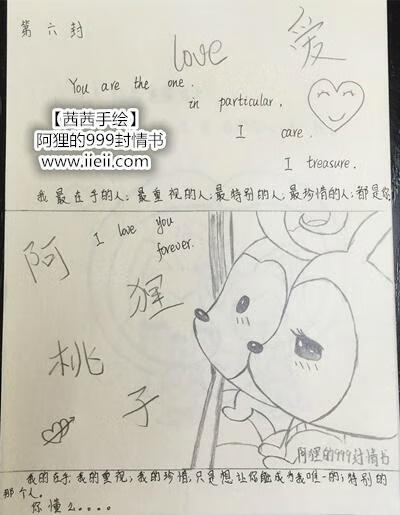 第六封
love 爱
You are the one.
in particular.
I care.
I treasure.
【茜茜手绘】
阿狸的999封情书
www.iieii.com
我最在乎的人;最重视的人;最特别的人;最珍惜的人;都是你
I love you
forever.
阿狸
桃子
阿狸的999封情书
我的在乎,我的重视,我的珍惜,只是想让你能成为我唯一的;特别的
那个人。
你懂么....